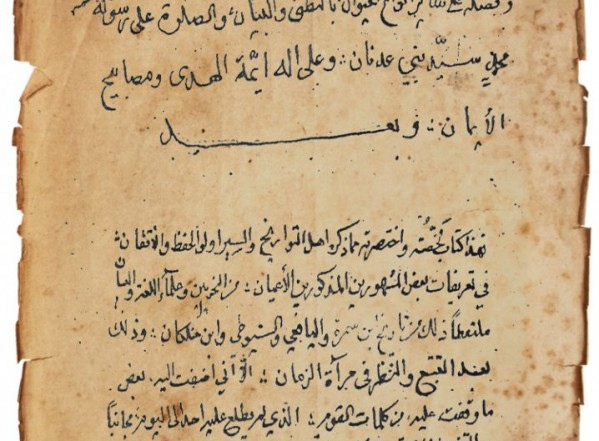 وفضله على سائر انواع الحيوان بالنطق والبيان والصلوة على رسوله
محمد سيد بني عدنان وعلى اله ايمة الهدى ومصابيح
الأيمان وبعد
فهذا كتاب لخصته واختصرته مما ذكر اهل التواريخ والسير اولو الحفظ والاتقان
في تعريفات بعض المشهورين المذكورين الأعيان من النحويين وعلماء اللغة والبيان
ملتقطا ذلك من تاريخ ابن سمرة واليافعي والسيوطي وابن خلكان وذلك
بعد التتبع والنظر في مرآة الزمان الا أني اضفت اليه بعض
ما وقفت عليه من كلمات القوم الذي لم يطلع عليه احد الى اليوم مجانبا